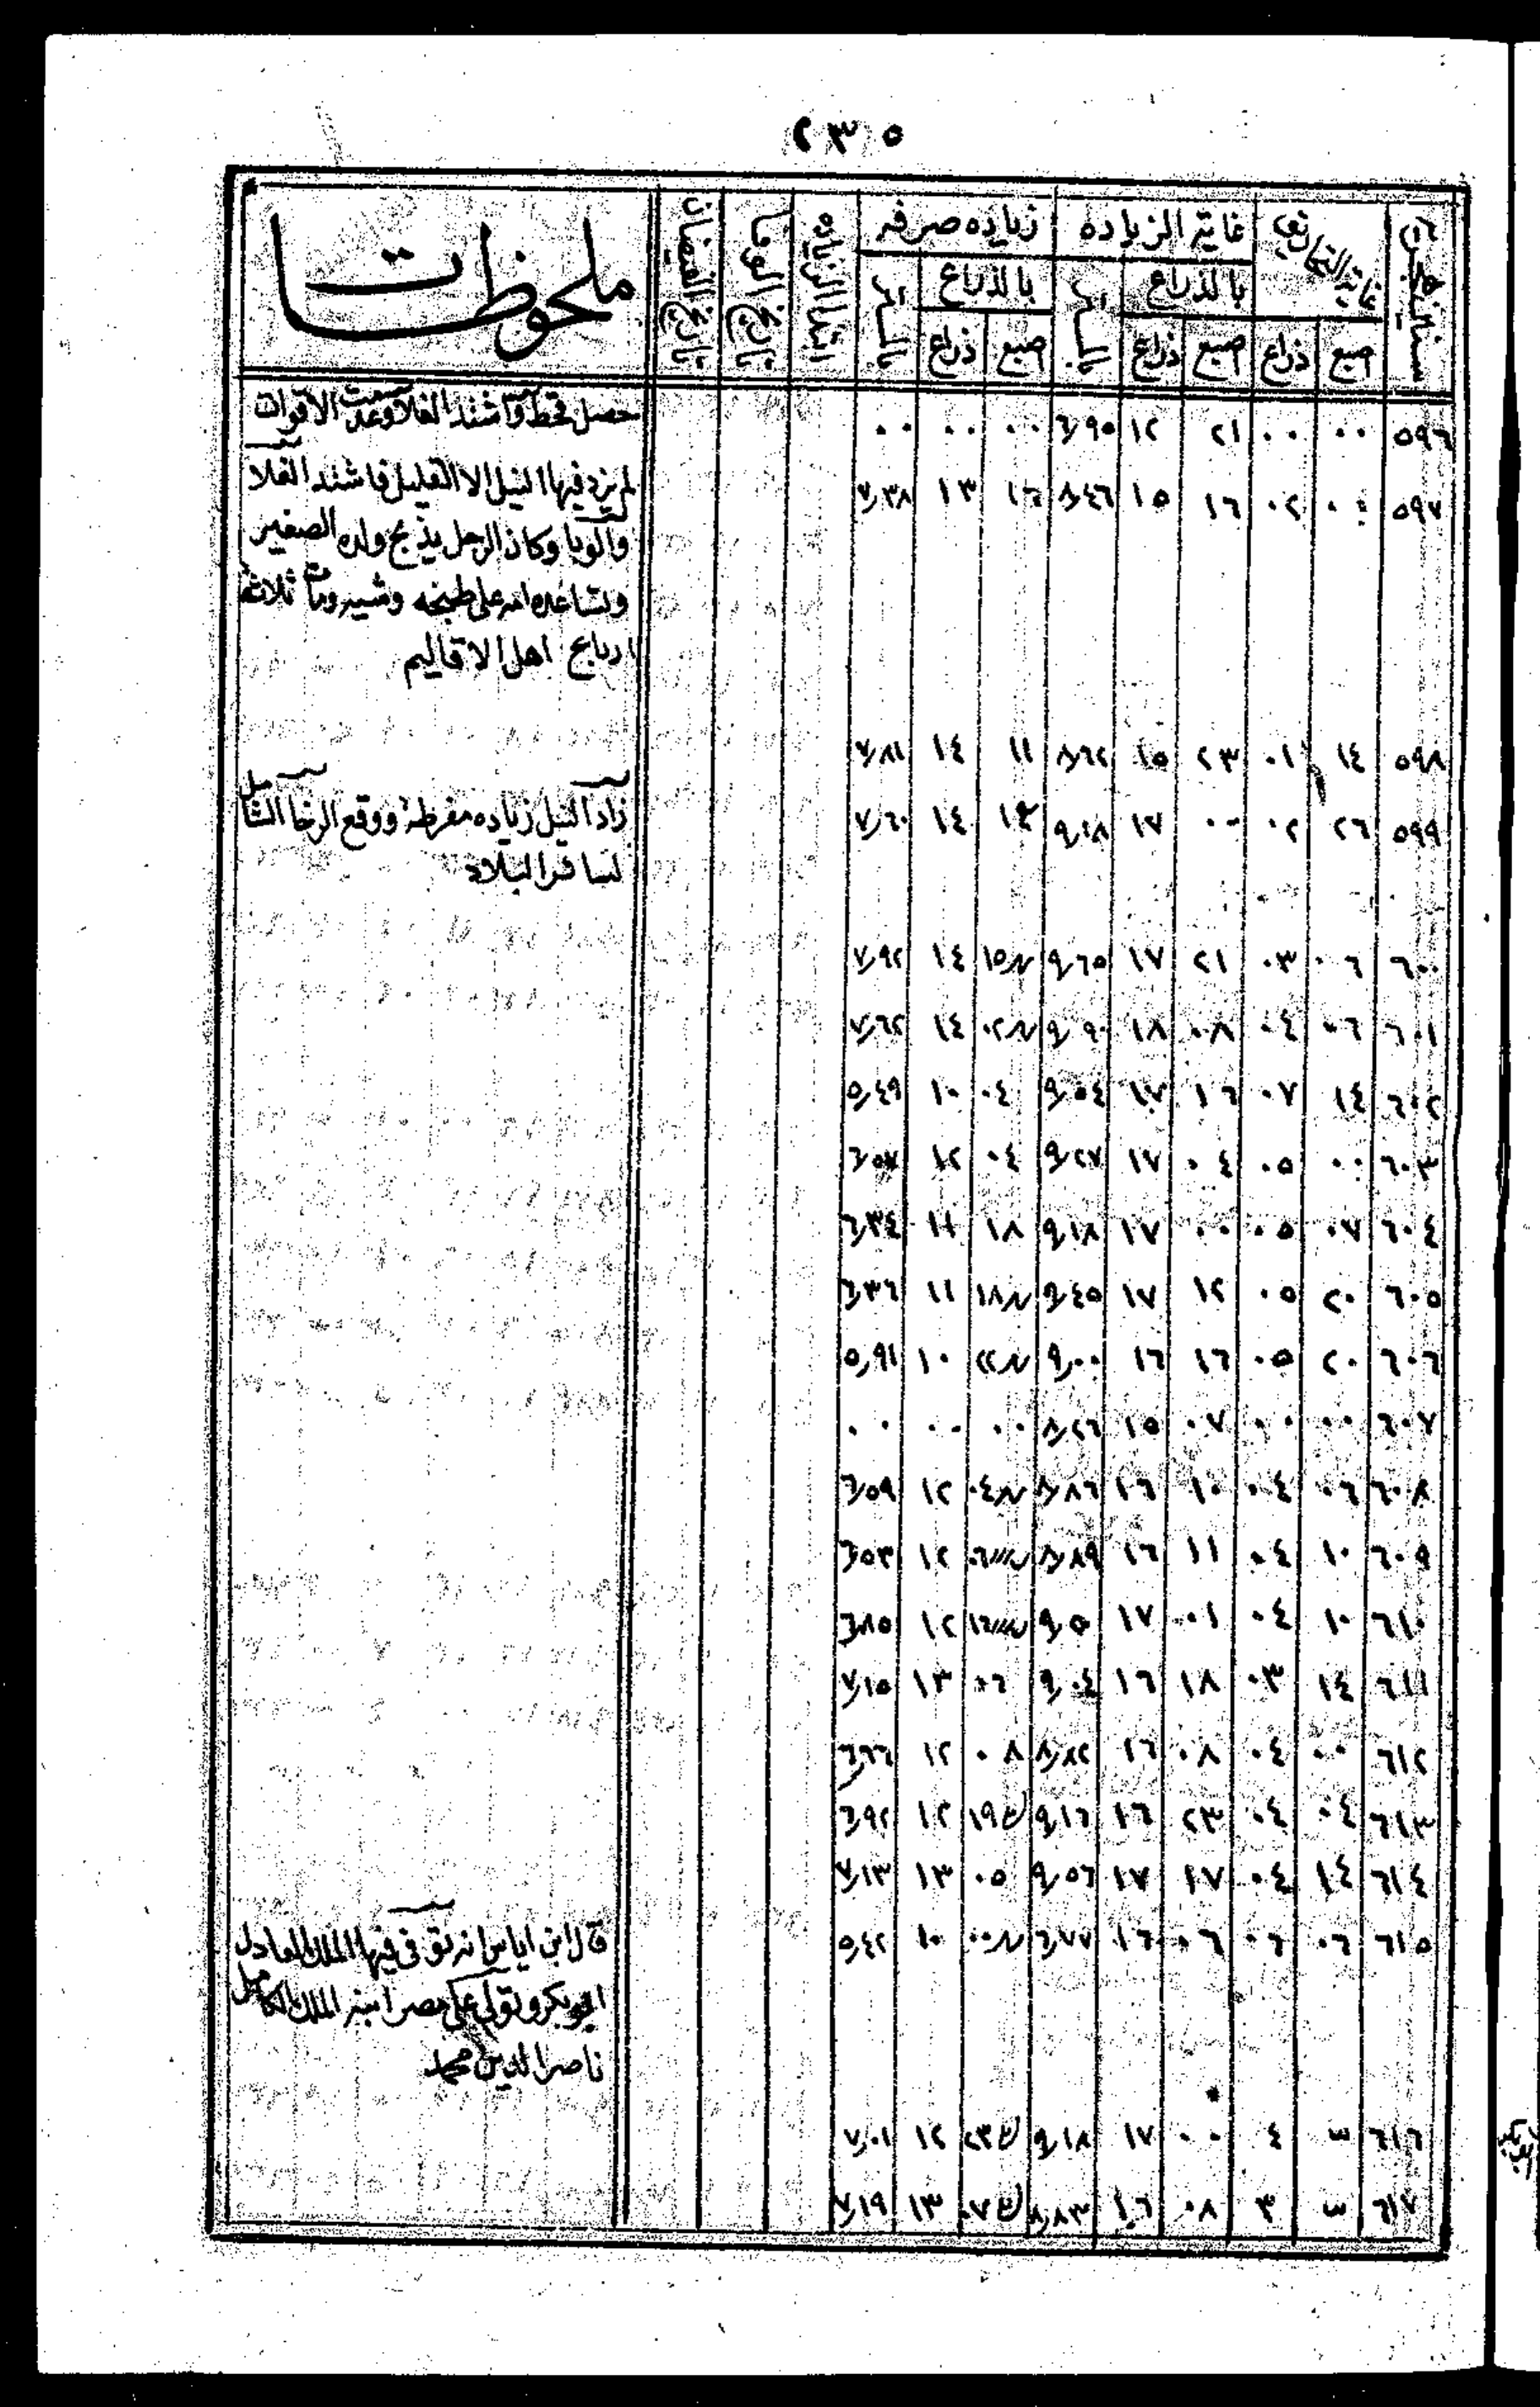 ٢٣٥
سنين هجرية | غاية التحاريق | غاية الزياده | زياده صرفه | ابتدا الزياده | تاريخ الوفا | تاريخ الفيضان | ملحوظات
بالذراع | بالمتر | بالذراع | بالمتر
اصبع | ذراع | اصبع | ذراع | اصبع | ذراع
٥٩٦ | ٠٠ | ٠٠ | ٢١ | ١٢ | ٦٫٩٥ | ٠٠ | ٠٠ | ٠٠ | حصل قحط واشتد الغلا وعدمت الاقوات
٥٩٧ | ٠٠ | ٠٢ | ١٦ | ١٥ | ٨٫٤٦ | ١٦ | ١٣ | ٧٫٣٨ | لم يزد فيها النيل الا القليل فاشتد الغلا
والوبا وكان الرجل يذبح ولده الصغير
وتساعده امه على طبخه وشيه ومات ثلاثة
ارباع اهل الاقاليم
٥٩٨ | ١٤ | ٠١ | ٢٣ | ١٥ | ٨٫٦٢ | ١١ | ١٤ | ٧٫٨١
٥٩٩ | ٢٦ | ٠٢ | ٠٠ | ١٧ | ٩٫١٨ | ١٤ | ٧٫٦٠ | زاد النيل زياده مفرطة ووقع الرخا الشامل
لسائر البلاد
٦٠٠ | ٠٦ | ٠٣ | ٢١ | ١٧ | ٩٫٦٥ | ١٥ | ١٤ | ٧٫٩٢
٦٠١ | ٠٦ | ٠٤ | ٠٨ | ١٨ | ٩٫٩٠ | ٠٢ | ١٤ | ٧٫٦٢
٦٠٢ | ١٤ | ٠٧ | ١٦ | ١٧ | ٩٫٥٤ | ٠٤ | ١٠ | ٥٫٤٩
٦٠٣ | ٠٠ | ٠٥ | ٠٤ | ١٧ | ٩٫٢٧ | ٠٤ | ١٢ | ٦٫٥٧
٦٠٤ | ٠٧ | ٠٥ | ٠٠ | ١٧ | ٩٫١٨ | ١٨ | ١١ | ٦٫٣٤
٦٠٥ | ٢٠ | ٠٥ | ١٢ | ١٧ | ٩٫٤٥ | ١٨ | ١١ | ٦٫٣٦
٦٠٦ | ٢٠ | ٠٥ | ١٦ | ١٦ | ٩٫٠٠ | ٢٢ | ١٠ | ٥٫٩١
٦٠٧ | ٠٠ | ٠٠ | ٠٧ | ١٥ | ٨٫٢٦ | ٠٠ | ٠٠ | ٠٠
٦٠٨ | ٠٦ | ٠٤ | ١٠ | ١٦ | ٨٫٨٦ | ٠٤ | ١٢ | ٦٫٥٩
٦٠٩ | ١٠ | ٠٤ | ١١ | ١٦ | ٨٫٨٩ | ٠٦ | ١٢ | ٦٫٥٣
٦١٠ | ١٠ | ٠٤ | ٠١ | ١٧ | ٩٫٥ | ١٦ | ١٢ | ٦٫٨٥
٦١١ | ١٤ | ٠٣ | ١٨ | ١٦ | ٩٫٠٤ | ٠٦ | ١٣ | ٧٫١٥
٦١٢ | ٠٠ | ٠٤ | ٠٨ | ١٦ | ٨٫٨٢ | ٠٨ | ١٢ | ٦٫٦٦
٦١٣ | ٠٤ | ٠٤ | ٢٣ | ١٦ | ٩٫١٦ | ١٩ | ١٢ | ٦٫٩٢
٦١٤ | ١٤ | ٠٤ | ١٧ | ١٧ | ٩٫٥٦ | ٠٥ | ١٣ | ٧٫١٣
٦١٥ | ٠٦ | ٠٦ | ٠٦ | ١٦ | ٦٫٧٧ | ٠٠ | ١٠ | ٥٫٤٢ | قال ابن اياس انه توفى فيها الملك العادل
ابو بكر وتولى على مصر ابنه الملك الكامل
ناصر الدين محمد
٦١٦ | ٣ | ٤ | ٠٠ | ١٧ | ٩٫١٨ | ٢٣ | ١٢ | ٧٫٠١
٦١٧ | ٣ | ٣ | ٠٨ | ١٦ | ٨٫٨٣ | ٠٧ | ١٣ | ٧٫١٩